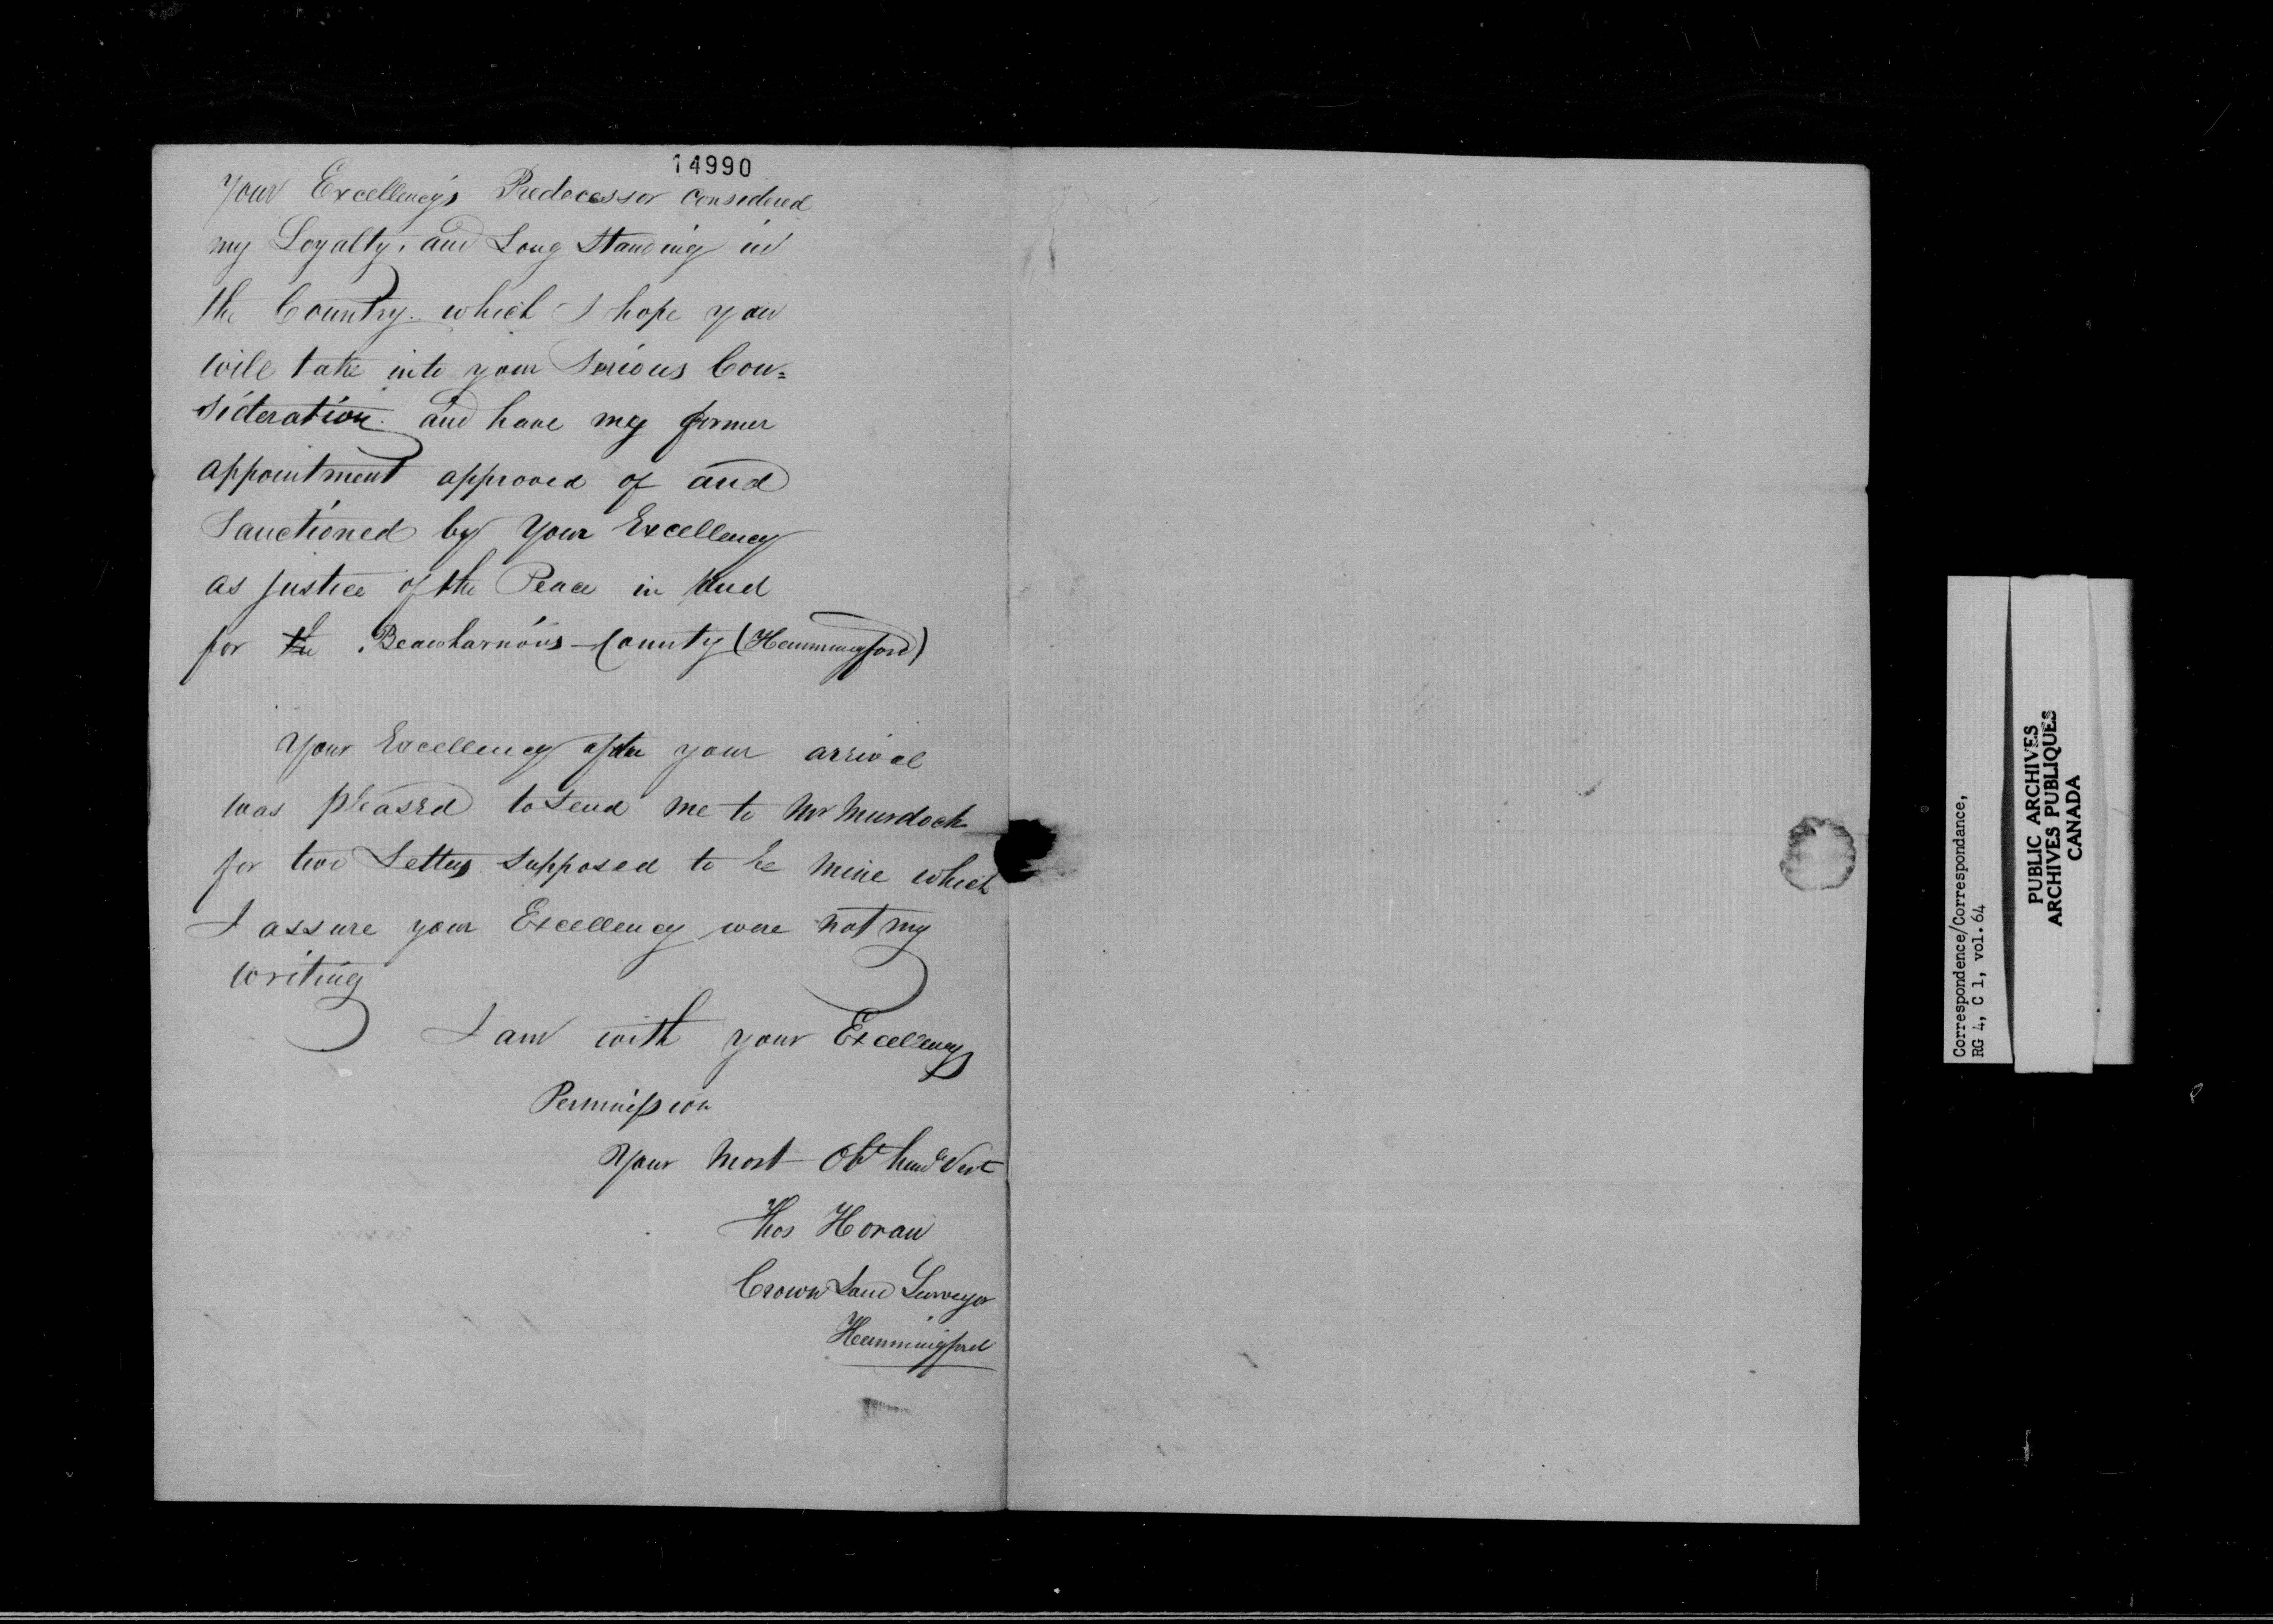 14990
Your Excellency's Predecessor Considered
my Loyalty, and Long Standing in
the Country. which I hope you
will take into your Serious Con=
sideration. and have my former
appointment approved of and
Sanctioned by Your Excellency
as Justice of the Peace in and
for the Beauharnois County (Hemmingford)
Your Excellency after your arrival
was pleased to send me to Mr Murdoch
for two Letters supposed to be mine which
I assure your Excellency were not my
writing
I am with your Excellencys
Permission
Your Most Obt humb Svt
Thos Horan
Crown Land Surveyor
Hemmingford
Correspondence/Correspondance,
RG 4, C 1, vol. 64
PUBLIC ARCHIVES
ARCHIVES PUBLIQUES
CANADA